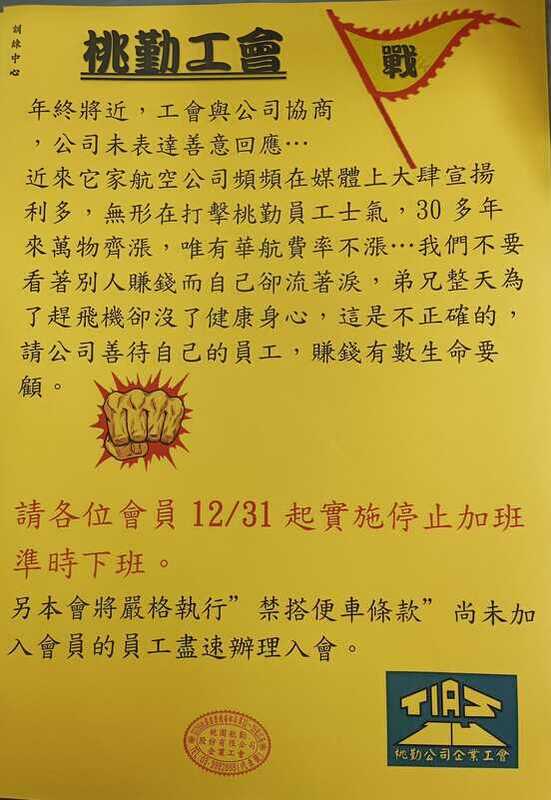 訓練中心
桃勤工會
戰
年終將近，工會與公司協商
，公司未表達善意回應…
近來它家航空公司頻頻在媒體上大肆宣揚
利多，無形在打擊桃勤員工士氣，30 多年
來萬物齊漲，唯有華航費率不漲…我們不要
看著別人賺錢而自己卻流著淚，弟兄整天為
了趕飛機卻沒了健康身心，這是不正確的，
請公司善待自己的員工，賺錢有數生命要
顧。
請各位會員 12/31 起實施停止加班
準時下班。
另本會將嚴格執行”禁搭便車條款”尚未加
入會員的員工盡速辦理入會。
桃園航勤
股份有限公司
企業工會
TIAS
桃勤公司企業工會